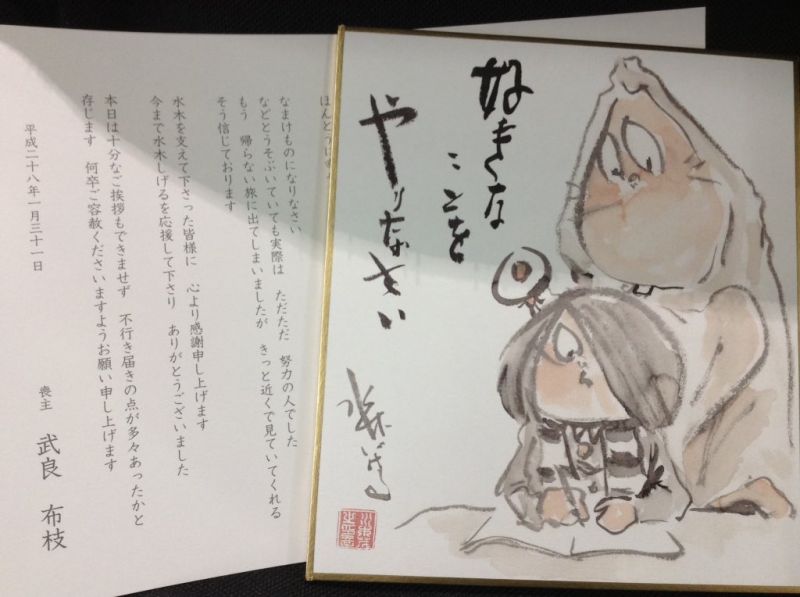 好きな
ことを
やりなさい
水木しげる
なまけものになりなさい
などとうそぶいていても実際は　ただただ　努力の人でした
もう　帰らない旅に出てしまいましたが　きっと近くで見ていてくれる
そう信じております
水木を支えて下さった皆様に　心より感謝申し上げます
今まで水木しげるを応援して下さり　ありがとうございました
本日は十分なご挨拶もできませず　不行き届きの点が多々あったかと
存じます　何卒ご容赦くださいますようお願い申し上げます
平成二十八年一月三十一日
喪主　武良　布枝